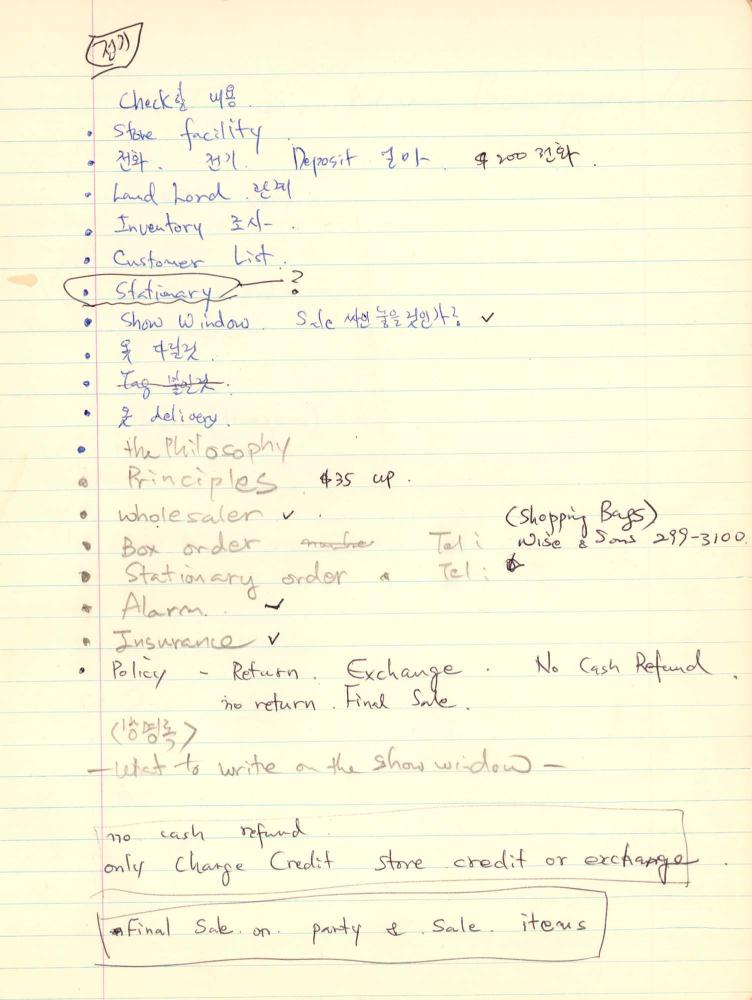 전기
Check할 내용.
• Store facility.
• 전화. 전기. Deposit 얼마 $200 전화.
• Land Lord 관계
• Inventory 조사.
• Customer List.
• Stationary ?
• Show window. Sale 싸인 놓을 것인가? ✓
• 옷 다릴것.
• Tag 붙일것.
• 옷 delivery.
• the Philosophy
• Principles $35 up.
• wholesaler ✓ (Shopping Bags)
• Box order Tel: Wise & Sons 299-3100
• Stationary order Tel:
• Alarm. ✓
• Insurance ✓
• Policy - Return. Exchange. No Cash Refund.
no return. Final Sale.
- What to write on the show window -
no cash refund.
only Charge Credit store credit or exchange.
Final Sale. on. party & Sale. items